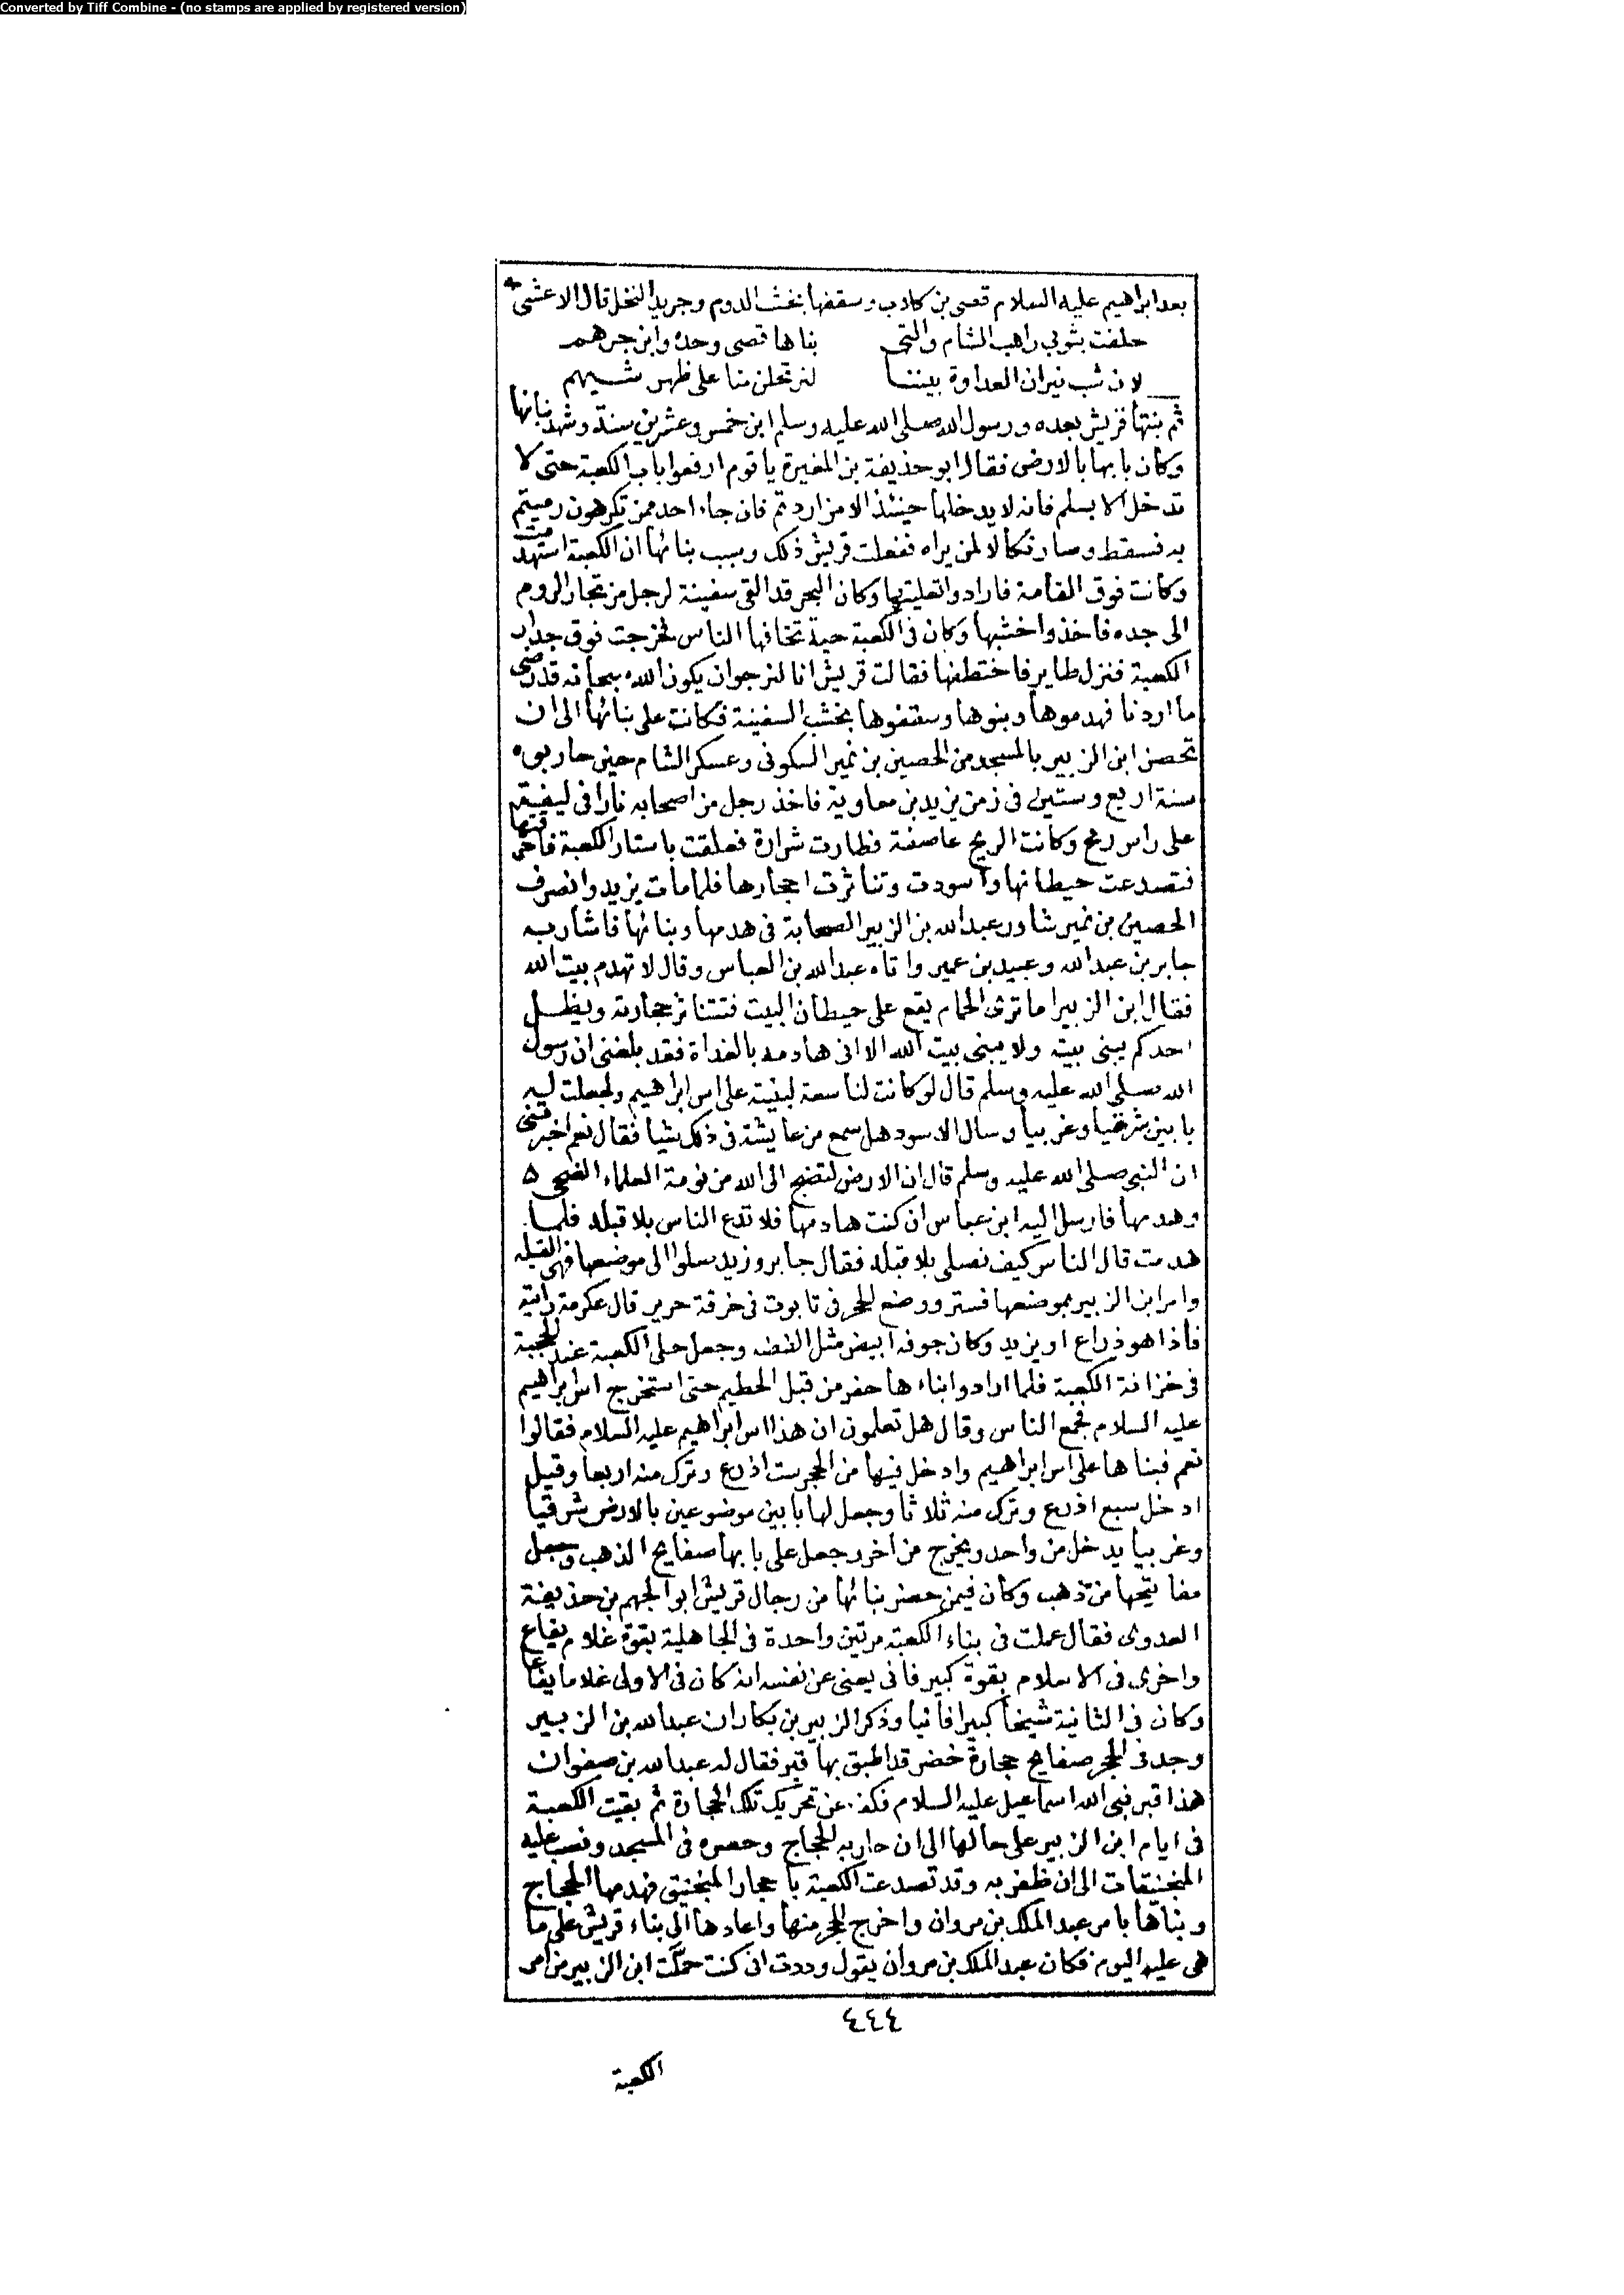 Converted by Tiff Combine - (no stamps are applied by registered version)
بعد ابراهيم عليه السلام قصى بن كلاب وسقفها بخشب الدوم وجريد النخل قال الاعشى
حلفت بثوبي راهب الشام والتى بناها قصى وحده وابن جرهم
لان شب نيران العداوة بيننا لنرتحلن منا على ظهر شيهم
ثم بنتها قريش بعده ورسول الله صلى الله عليه وسلم ابن خمس وعشرين سنة وشهد بنانها
وكان بابها بالارض فقال ابو حذيفة بن المغيرة يا قوم ارفعوا باب الكعبة حتى لا
تدخل الا بسلم فانه لا يدخلها حينئذ الا من اردتم فان جاء احد ممن تكرهون رميتم
به فسقط وصار نكالا لمن يراه ففعلت قريش ذلك وسبب بنائها ان الكعبة استهدمت
وكانت فوق القامة فارادوا تعليتها وكان البحر قد القى سفينة لرجل من تجار الروم
الى جده فاخذوا خشبها وكان فى الكعبة حية تخافها الناس فخرجت فوق جدار
الكعبة فنزل طاير فاختطفها فقالت قريش انا لنرجوان يكون الله سبحانه قد رضى
ما اردنا فهدموها وبنوها وسقفوها بخشب السفينة فكانت على بنائها الى ان
تحصن ابن الزبير بالمسجد من الحصين بن نمير السكونى وعسكر الشام حين حاربوه
سنة اربع وستين فى زمن يزيد بن معاوية فاخذ رجل من اصحابه نارا فى ليفة
على راس رمح وكانت الريح عاصفة فطارت شرارة فعلقت باستار الكعبة فاحرقتها
فتصدعت حيطانها واسودت وتناثرت احجارها فلما مات يزيد وانصرف
الحصين بن نمير شاور عبدالله بن الزبير الصحابة فى هدمها وبنائها فاشار به
جابر بن عبدالله وعبيد بن عمير واتاه عبدالله بن العباس وقال لا تهدم بيت الله
فقال ابن الزبير اما ترى الحمام يقع على حيطان البيت فتتناثر حجارته ويظل
احدكم يبنى بيته ولا يبنى بيت الله الا انى هادمه بالغداة فقد بلغنى ان رسول
الله صلى الله عليه وسلم قال لو كانت لنا سعة لبنيته على اس ابراهيم ولجعلت له
بابين شرقيا وغربيا وسال الاسود هل سمع من عايشة فى ذلك شيا فقال نعم اخبرتنى
ان النبى صلى الله عليه وسلم قال ان الارض لتضج الى الله من نومة العلماء الضحى ٥
وهدمها فارسل اليه ابن عباس ان كنت هادمها فلا تدع الناس بلا قبله فلما
هدمت قال الناس كيف نصلى بلا قبله فقال جابر وزيد صلوا الى موضعها فهى القبله
وامر ابن الزبير بموضعها فستر ووضع الحجر فى تابوت فى خرقة حرير قال عكرمة رايته
فاذا هو ذراع او يزيد وكان جوفه ابيض مثل الفضه وجعل حلى الكعبة عند الحجبة
فى خزانة الكعبة فلما ارادوا بناءها حفر من قبل الحطيم حتى استخرج اس ابراهيم
عليه السلام فجمع الناس وقال هل تعلمون ان هذا اس ابراهيم عليه السلام فقالوا
نعم فبناها على اس ابراهيم وادخل فيها من الحجر ست اذرع وترك منه اربعا وقيل
ادخل سبع اذرع وترك منه ثلاثا وجعل لها بابين موضوعين بالارض شرقيا
وغربيا يدخل من واحد ويخرج من اخر وجعل على بابها صفايح الذهب وجعل
مفاتيحها من ذهب وكان فيمن حضر بنائها من رجال قريش ابو الجهم بن حذيفة
العدوى فقال عملت فى بناء الكعبة مرتين واحدة فى الجاهلية بقوة غلام يفاع
واخرى فى الاسلام بقوة كبير فانى يعنى عن نفسه انه كان فى الاولى غلاما يفاعا
وكان فى الثانية شيخا كبيرا فانيا وذكر الزبير بن بكار ان عبدالله بن الزبير
وجد فى الحجر صفايح حجارة خضر قد اطبق بها قبر فقال له عبدالله بن صفوان
هذا قبر نبى الله اسماعيل عليه السلام فكف عن تحريك تلك الحجارة ثم بقيت الكعبة
فى ايام ابن الزبير على حالها الى ان حاربه الحجاج وحصره فى المسجد ونصب عليه
المنجنيقات الى ان ظفر به وقد تصدعت الكعبة باحجار المنجنيق فهدمها الحجاج
وبناها بامر عبد الملك بن مروان واخرج الحجر منها واعادها الى بناء قريش على ما
هى عليه اليوم فكان عبد الملك بن مروان يقول وددت انى كنت حملت ابن الزبير من امر
٤٤٤
الكعبة